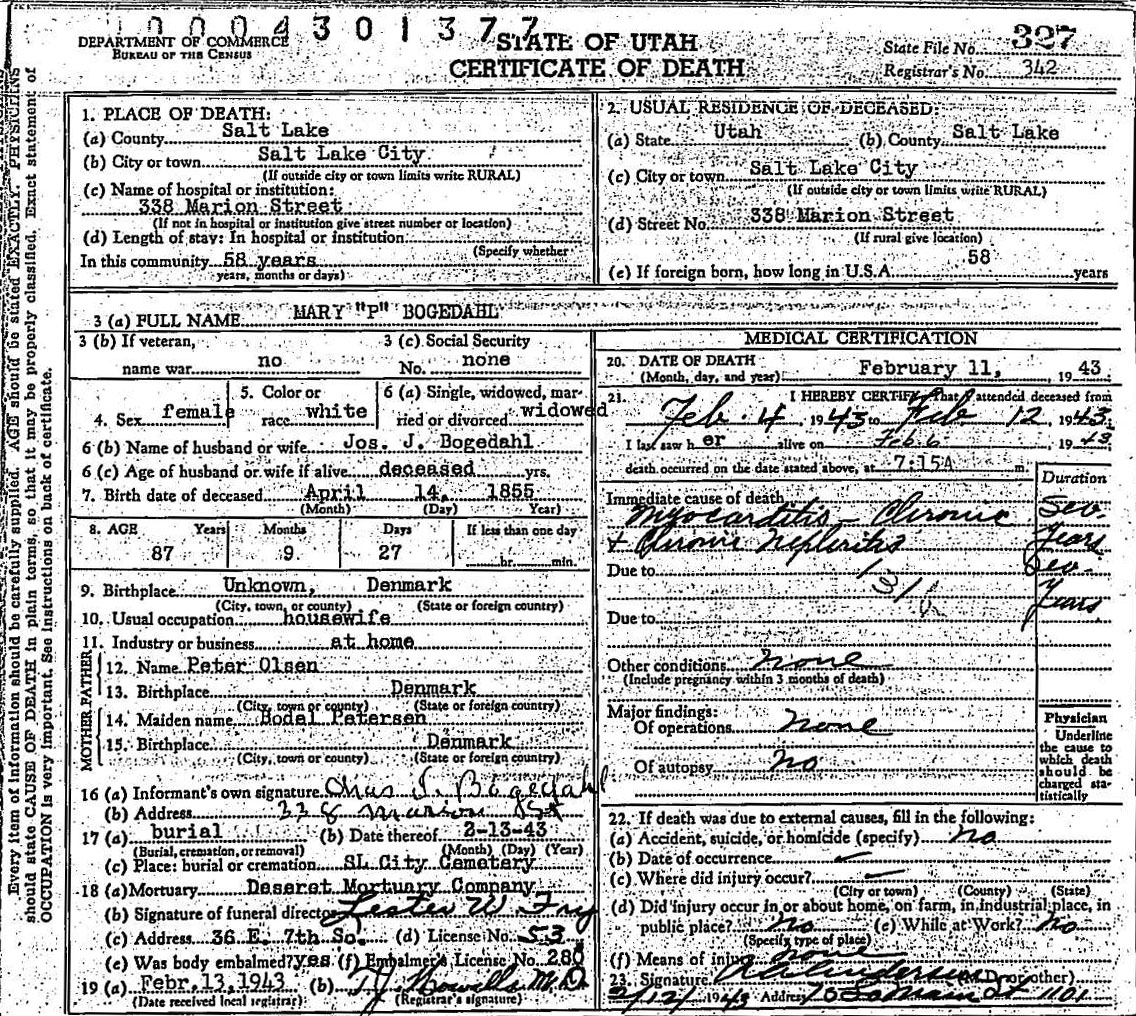 0004301377
DEPARTMENT OF COMMERCE
BUREAU OF THE CENSUS
STATE OF UTAH
CERTIFICATE OF DEATH
State File No. 327
Registrar's No. 342
Every item of information should be carefully supplied. AGE should be stated EXACTLY. PHYSICIANS
should state CAUSE OF DEATH in plain terms, so that it may be properly classified. Exact statement of
OCCUPATION is very important. See instructions on back of certificate.
1. PLACE OF DEATH:
(a) County Salt Lake
(b) City or town Salt Lake City
(If outside city or town limits write RURAL)
(c) Name of hospital or institution:
338 Marion Street
(If not in hospital or institution give street number or location)
(d) Length of stay: In hospital or institution
(Specify whether
In this community 58 years
years, months or days)
2. USUAL RESIDENCE OF DECEASED:
(a) State Utah (b) County Salt Lake
(c) City or town Salt Lake City
(If outside city or town limits write RURAL)
(d) Street No. 338 Marion Street
(If rural give location)
(e) If foreign born, how long in U.S.A. 58 years
3 (a) FULL NAME MARY "P" BOGEDAHL
3 (b) If veteran,
name war no
3 (c) Social Security
No. none
4. Sex female
5. Color or
race white
6 (a) Single, widowed, mar-
ried or divorced widowed
6 (b) Name of husband or wife Jos. J. Bogedahl
6 (c) Age of husband or wife if alive deceased yrs.
7. Birth date of deceased April 14, 1855
(Month) (Day) Year)
8. AGE Years Months Days If less than one day
87 9 27 hr. min.
9. Birthplace Unknown, Denmark
(City, town, or county) (State or foreign country)
10. Usual occupation housewife
11. Industry or business at home
FATHER
12. Name Peter Olsen
13. Birthplace Denmark
(City, town or county) (State or foreign country)
MOTHER
14. Maiden name Bodel Petersen
15. Birthplace Denmark
(City, town or county) (State or foreign country)
16 (a) Informant's own signature Chas J. Bogedahl
(b) Address 338 Marion St
17 (a) burial (b) Date thereof 2-13-43
(Burial, cremation, or removal) (Month) (Day) (Year)
(c) Place: burial or cremation SL City Cemetary
18 (a) Mortuary Deseret Mortuary Company
(b) Signature of funeral director Lester W. Fry
(c) Address 36 E. 7th So. (d) License No. 53
(e) Was body embalmed? yes (f) Embalmer's License No. 280
19 (a) Febr. 13, 1943 (b) T.J. Howells M.D.
(Date received local registrar) (Registrar's signature)
MEDICAL CERTIFICATION
20. DATE OF DEATH
(Month, day, and year) February 11, 1943
21. I HEREBY CERTIFY that I attended deceased from
Feb. 4, 1943 to Feb 12, 1943.
I last saw her alive on Feb 6 1943
death occurred on the date stated above, at 7:15A m.
Duration
Immediate cause of death
Myocarditis - Chronic Sev.
+ Chronic Nephritis Years
Due to Sev.
Years
Due to
Other conditions none
(Include pregnancy within 3 months of death)
Major findings:
Of operations none
Of autopsy No
Physician
Underline
the cause to
which death
should be
charged sta-
tistically
22. If death was due to external causes, fill in the following:
(a) Accident, suicide, or homicide (specify) No
(b) Date of occurrence
(c) Where did injury occur?
(City or town) (County) (State)
(d) Did injury occur in or about home, on farm, in industrial place, in
public place? No (e) While at Work? No
(Specify type of place)
(f) Means of injury none
23. Signature Anderson (M.D. or other)
2/12/1943 Address 70 So Main St 1101